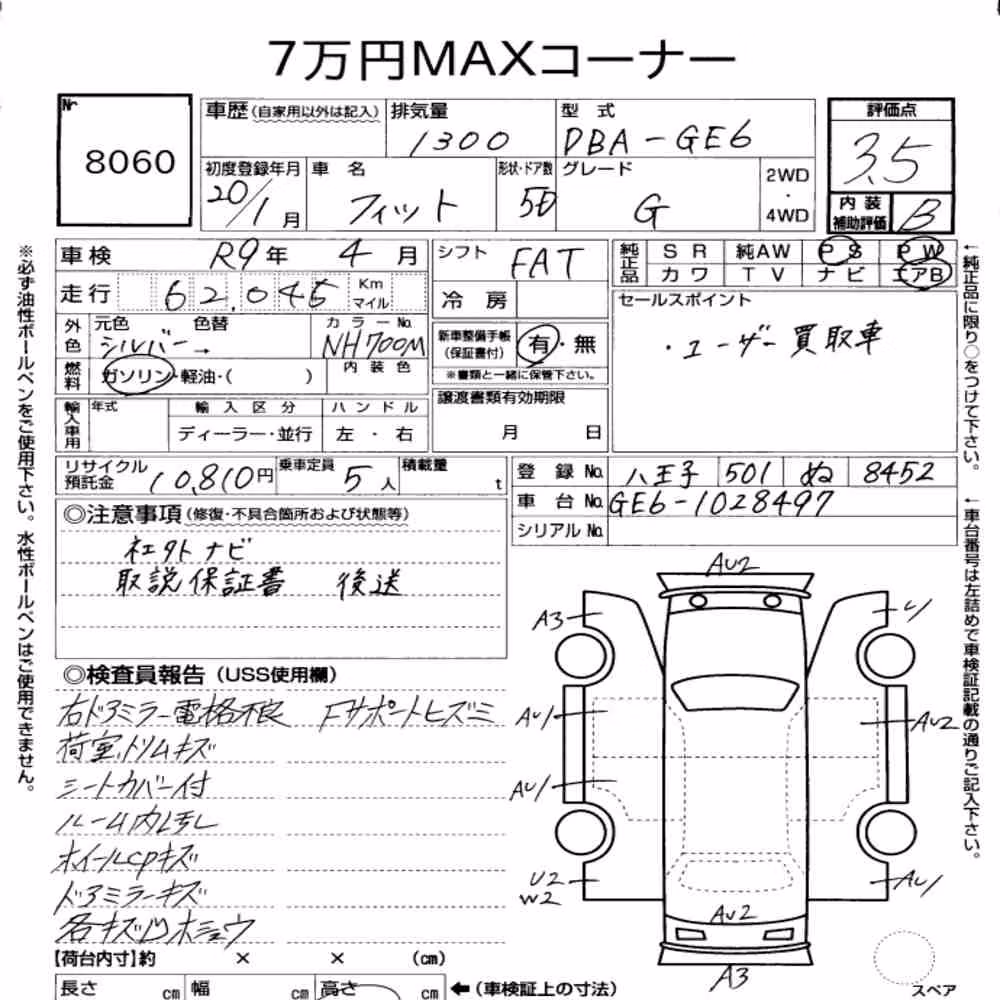 7万円MAXコーナー
№ 8060
車歴 (自家用以外は記入)
排気量 1300
型式 DBA-GE6
評価点 3.5
初度登録年月 20/1月
車名 フィット
形状・ドア数 5D
グレード G
2WD・4WD
内装補助評価 B
車検 R9年 4月
シフト FAT
純正品 SR 純AW PS PW
カワ TV ナビ エアB
走行 62,045 Km マイル
冷房
セールスポイント
・ユーザー買取車
外色 元色 シルバー→ 色替 カラーNo. NH700M
新車整備手帳(保証書付) 有・無
※書類と一緒に保管下さい。
燃料 ガソリン・軽油・( ) 内装色
譲渡書類有効期限 月 日
輸入車用 年式 輸入区分 ハンドル
ディーラー・並行 左・右
リサイクル預託金 10,810円 乗車定員 5人 積載量 t
登録No. 八王子 501 ぬ 8452
車台No. GE6-1028497
シリアルNo.
◎注意事項(修復・不具合箇所および状態等)
社外ナビ
取説保証書 後送
◎検査員報告(USS使用欄)
右ドアミラー電格不良 Fサポートヒズミ
荷室、トリムキズ
シートカバー付
ルーム内汚レ
ホイールcpキズ
ドアミラーキズ
各キズ凹ホシュウ
AU2
A3
AU1
AU2
AU1
U2
W2
AU1
AU2
A3
スペア
【荷台内寸】約 × × (cm)
長さ cm 幅 cm 高さ cm ←(車検証上の寸法)
※必ず油性ボールペンをご使用下さい。水性ボールペンはご使用できません。
←純正品に限り○をつけて下さい。
←車台番号は左詰めで車検証記載の通りご記入下さい。